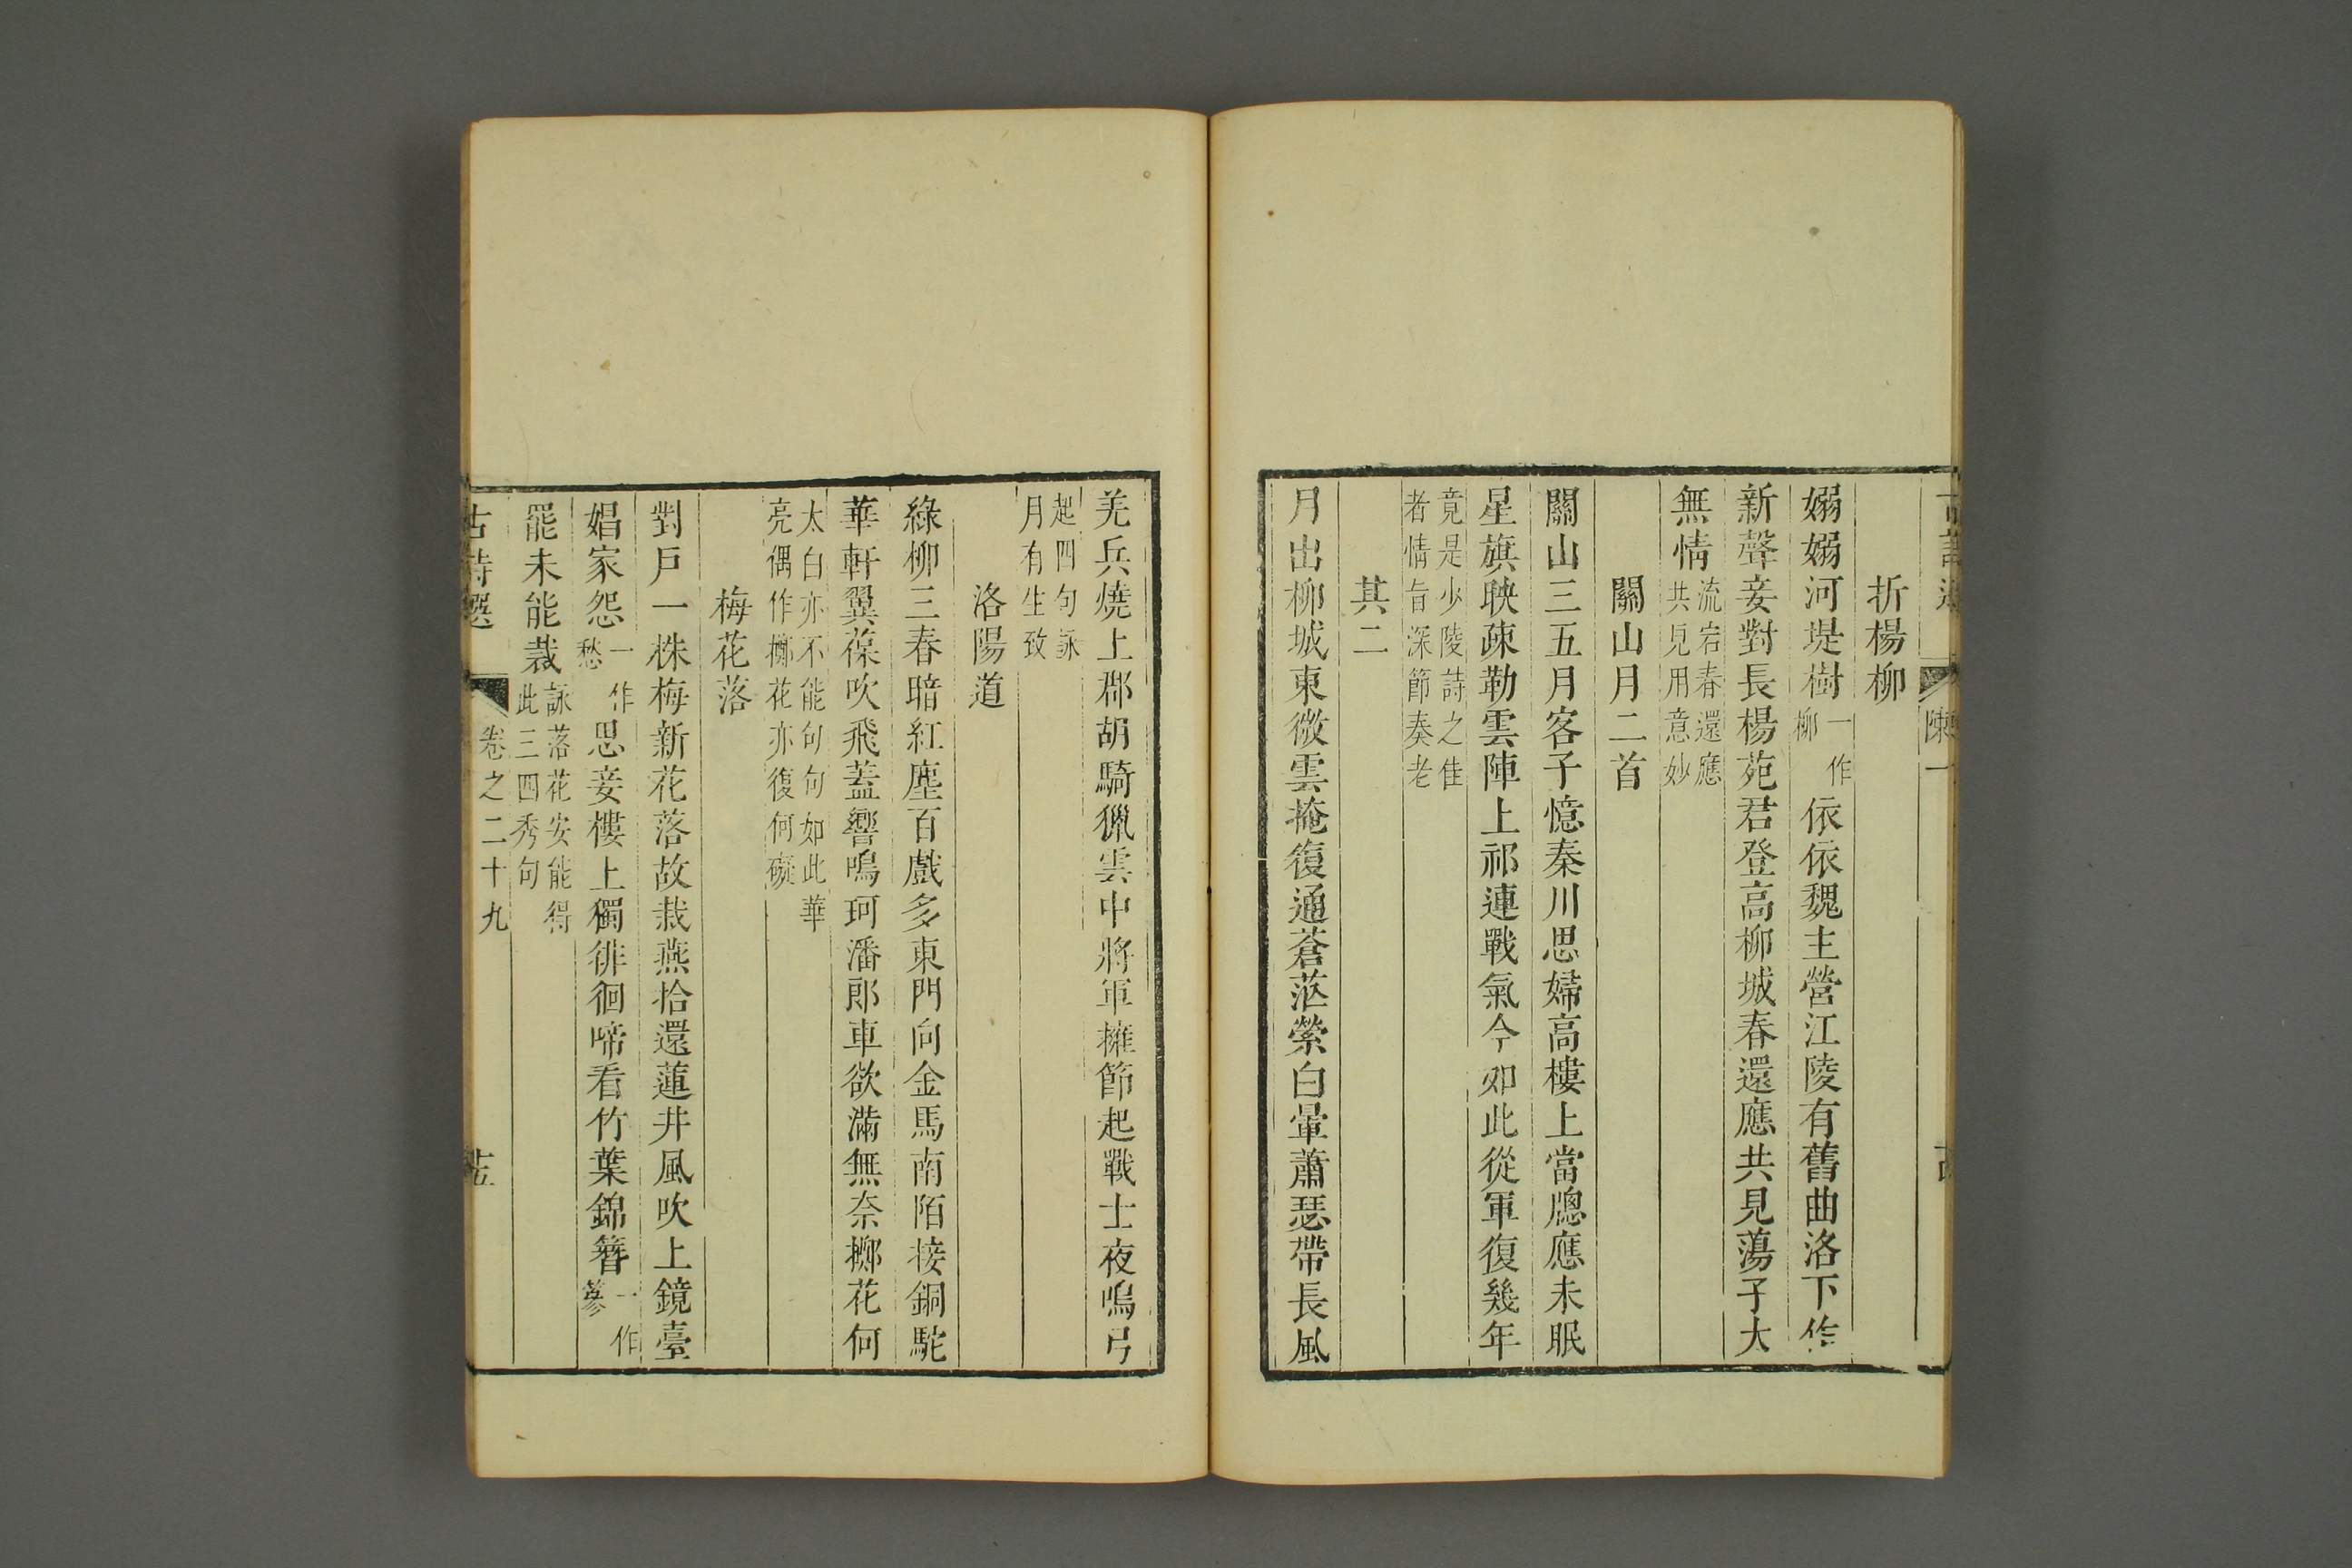 陳一
折楊柳
嫋嫋河堤樹一作柳依依魏主營江陵有舊曲洛下作
新聲妾對長楊苑君登高柳城春還應共見蕩子太
無情流宕春還應共見用意妙
關山月二首
關山三五月客子憶秦川思婦高樓上當牕應未眠
星旗映疎勒雲陣上祁連戰氣今如此從軍復幾年
竟是少陵詩之佳者情旨深節奏老
其二
月出柳城東微雲掩復通蒼茫縈白暈蕭瑟帶長風
羌兵燒上郡胡騎獵雲中將軍擁節起戰士夜鳴弓
起四句詠月有生致
洛陽道
綠柳三春暗紅塵百戲多東門向金馬南陌接銅駝
華軒翼葆吹飛蓋響鳴珂潘郎車欲滿無奈擲花何
太白亦不能句句如此華亮偶作擲花亦復何礙
梅花落
對戶一株梅新花落故栽燕拾還蓮井風吹上鏡臺
娼家怨一作愁思妾樓上獨徘徊啼看竹葉錦簪一作篸
罷未能裁詠落花安能得此三四秀句
古詩選
卷之二十九
十五